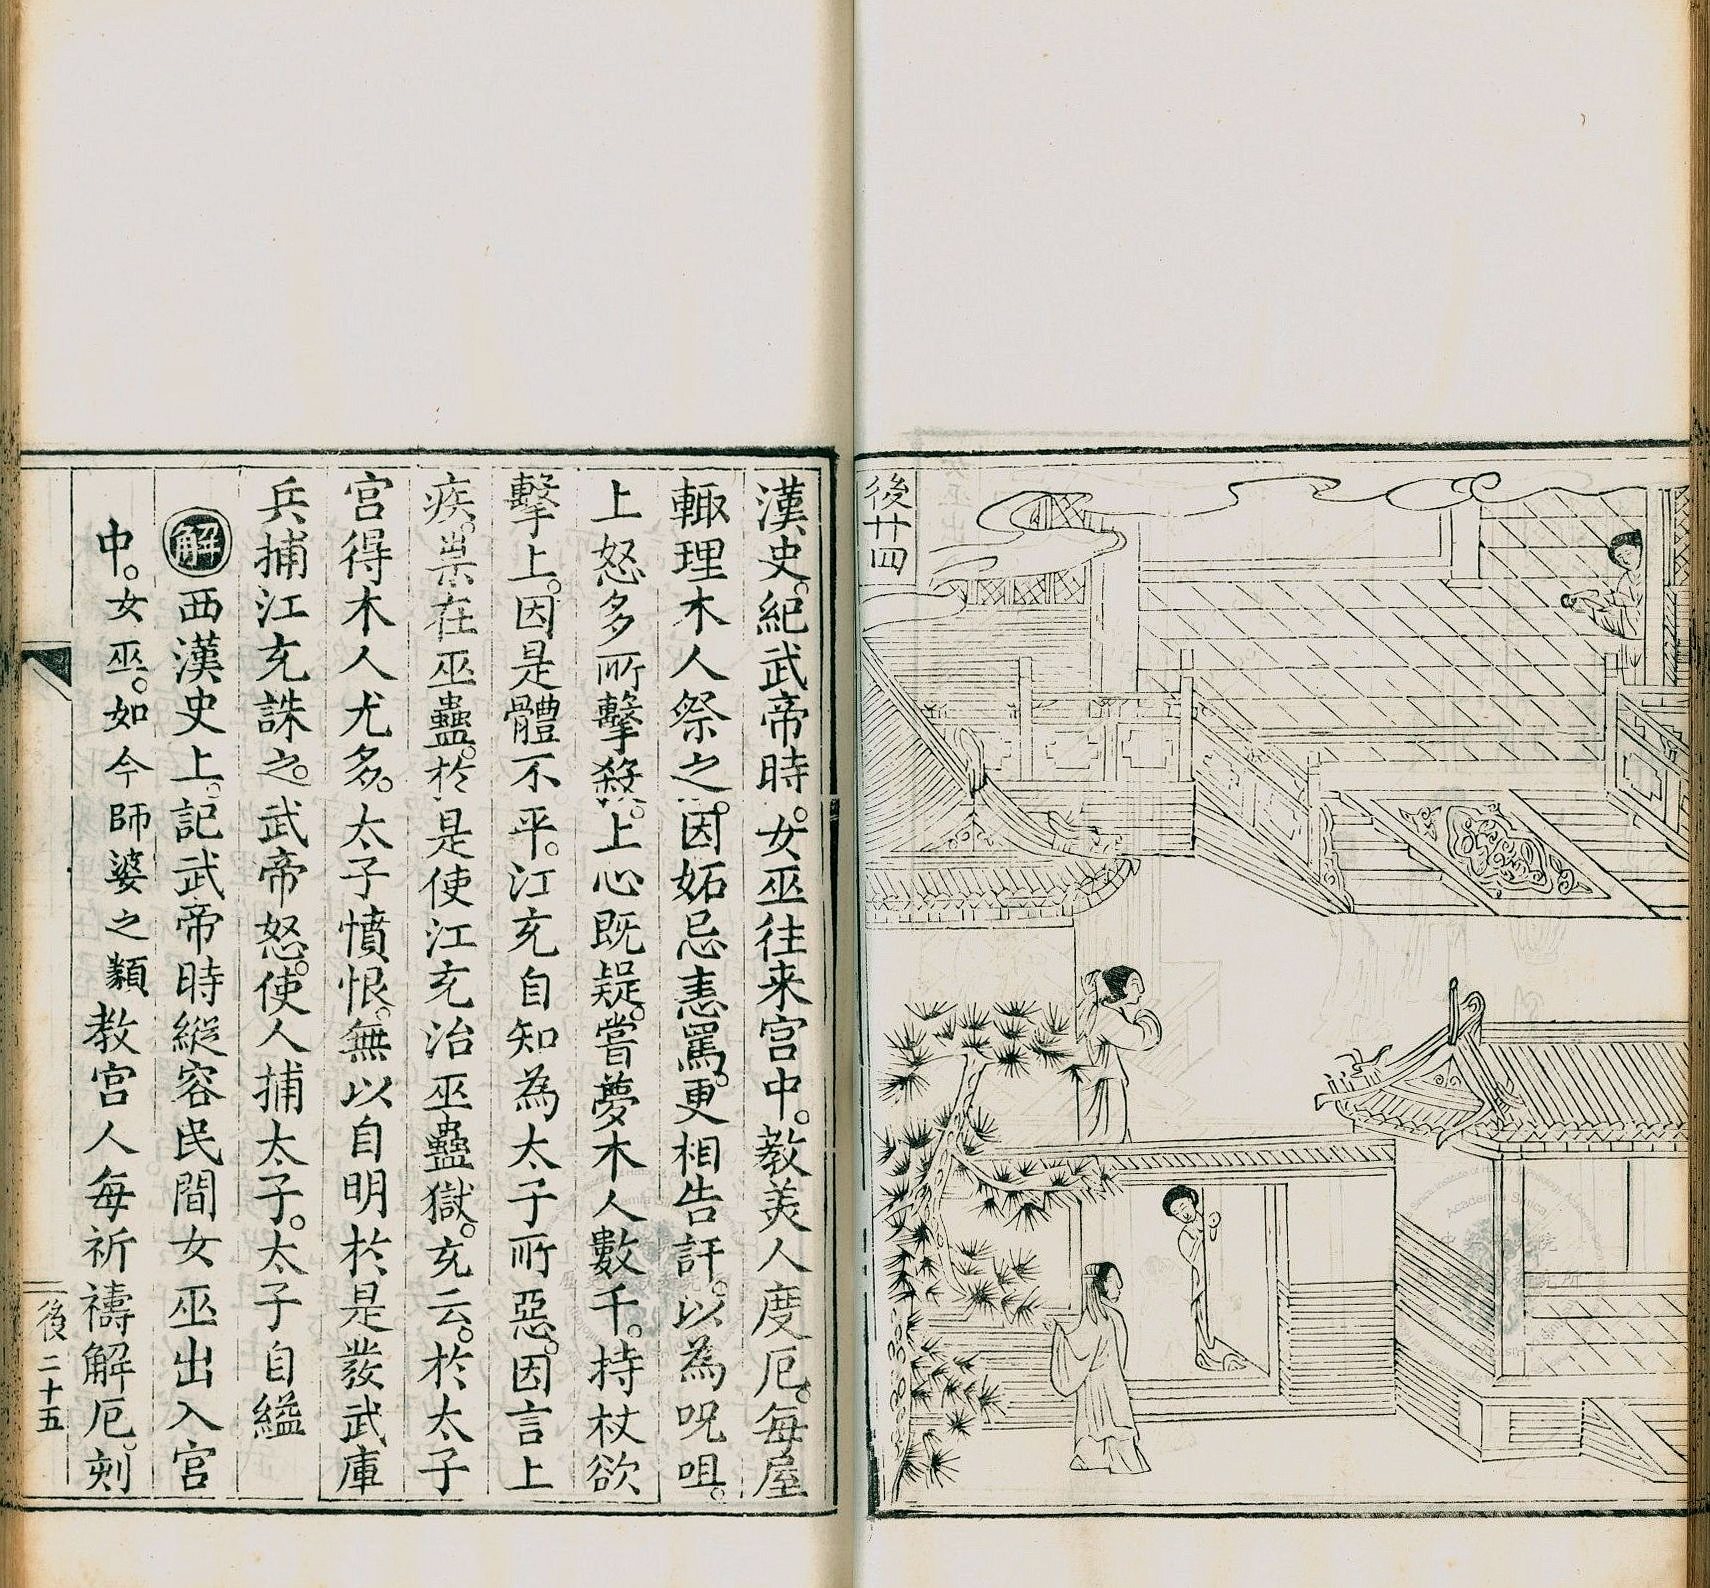 後廿四
漢史。紀武帝時。女巫往来宮中。教美人度厄。每屋
輙理木人祭之。因妬忌恚罵。更相告訐。以為呪咀。
上怒多所擊殺。上心既疑。嘗夢木人數千。持杖欲
擊上。因是體不平。江充自知為太子所惡。因言上
疾。祟在巫蠱。於是使江充治巫蠱獄。充云。於太子
宮得木人尤多。太子憤恨。無以自明於是發武庫
兵捕江充誅之。武帝怒。使人捕太子。太子自縊
解西漢史上。記武帝時縱容民間女巫出入宮
中。女巫。如今師婆之類教宮人每祈禱解厄。刻
後 二十五